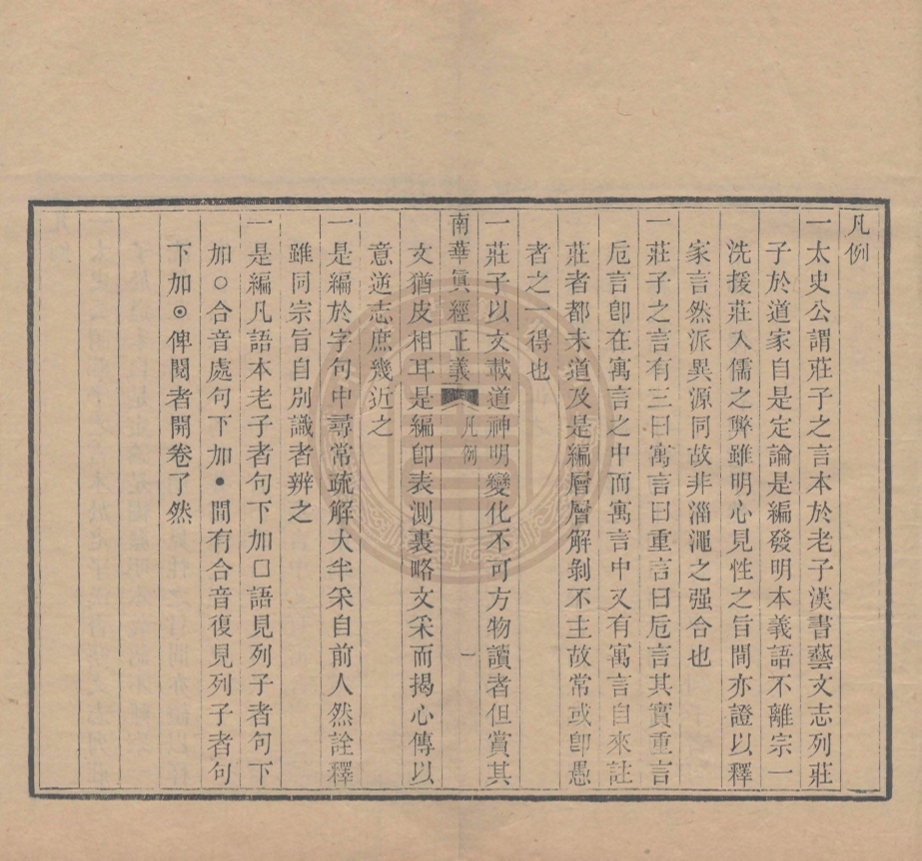 凡例
一太史公謂莊子之言本於老子漢書藝文志列莊
子於道家自是定論是編發明本義語不離宗一
洗援莊入儒之弊雖明心見性之旨間亦證以釋
家言然派異源同故非淄澠之强合也
一莊子之言有三曰寓言曰重言曰卮言其實重言
卮言卽在寓言之中而寓言中又有寓言自來註
莊者都未道及是編層層解剝不主故常或卽愚
者之一得也
一莊子以文載道神明變化不可方物讀者但賞其
南華眞經正義 凡例 一
文猶皮相耳是編卽表測裏略文采而揭心傳以
意逆志庶幾近之
一是編於字句中尋常疏解大半采自前人然詮釋
雖同宗旨自別識者辨之
一是編凡語本老子者句下加口語見列子者句下
加○合音處句下加•間有合音復見列子者句
下加⊙俾閱者開卷了然